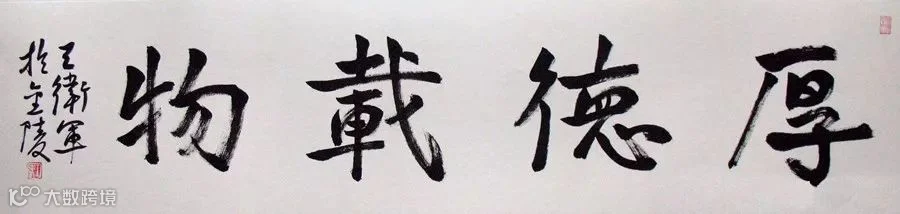 厚德載物
王衛軍
於金陵
大数跨境